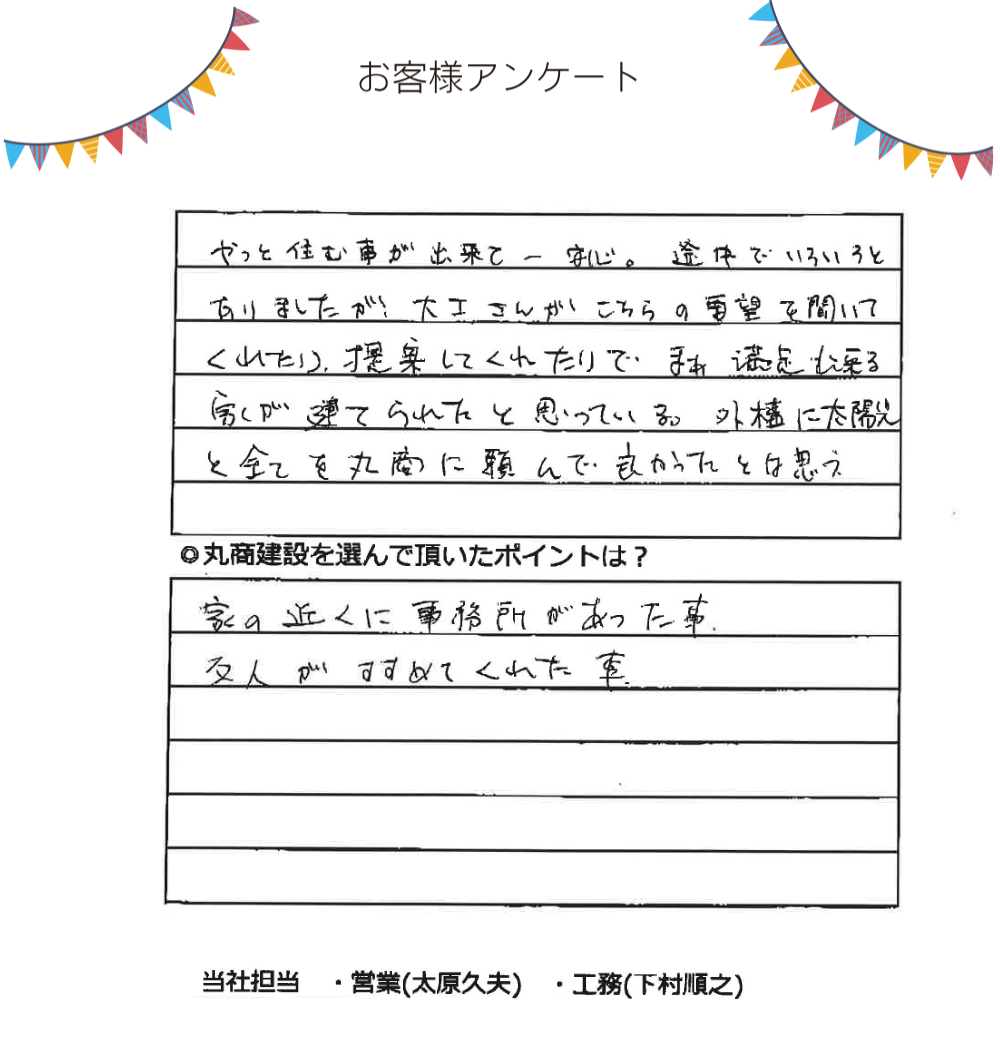 お客様アンケート
やっと住む事が出来て一安心。途中でいろいろと
ありましたが、大工さんがこちらの要望を聞いて
くれたり、提案してくれたりで、まあ満足出来る
家が建てられたと思っている。外構に太陽光
と全てを丸商に頼んで良かったとは思う
◎丸商建設を選んで頂いたポイントは？
家の近くに事務所があった事.
友人がすすめてくれた事.
当社担当　・営業(太原久夫)　・工務(下村順之)